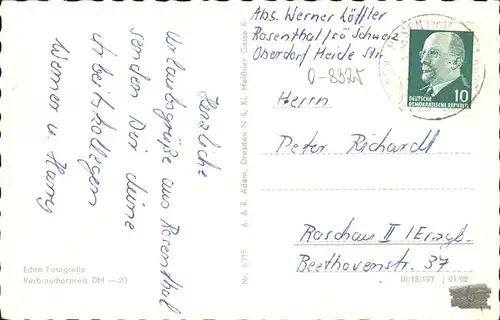 Abs. Werner Löffler
Rosenthal / sä Schweiz
Oberdorf Heide Str
0-8325
Herrn
Peter Richardt
Raschau II / Erzgb.
Beethovenstr. 37
Herzliche
Urlaubsgrüße aus Rosenthal
senden Dir deine
Arbeitskollegen
Werner u. Harry
DEUTSCHE
DEMOKRATISCHE REPUBLIK
10
A. & R. Adam, Dresden N 6, Kl. Meißner Gasse 6
Nr. 9/715
Echte Fotografie
Verbraucherpreis DM —.20
III/18/197 01/62